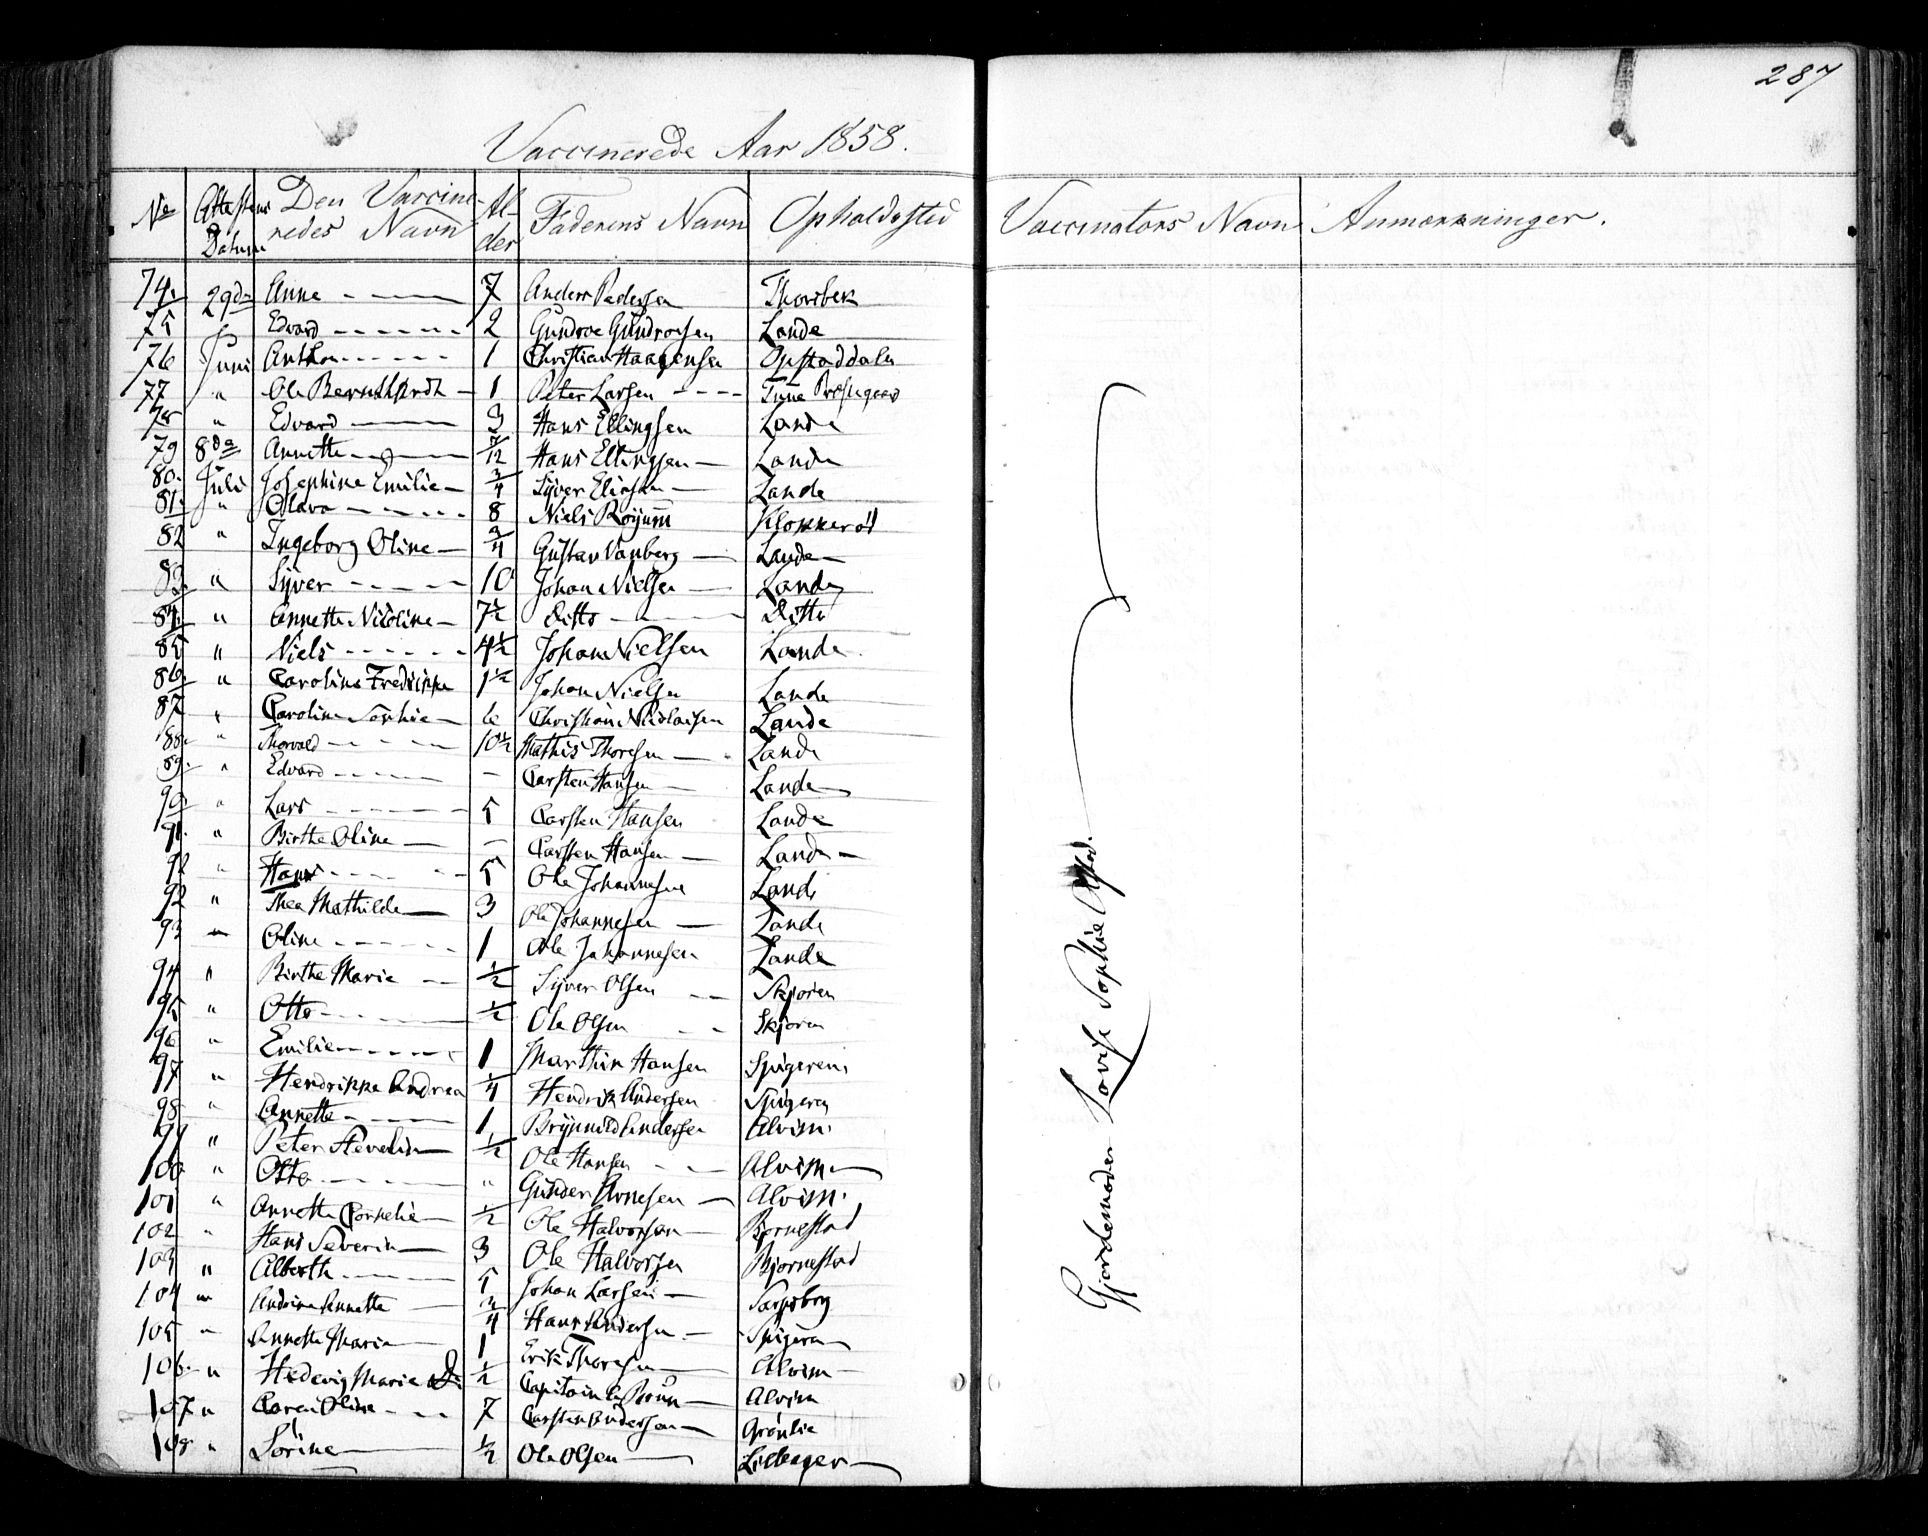 287
Vaccinerede Aar 1858.
No Attestens Datum Den Vaccineredes Navn Alder Faderens Navn Opholdssted Vaccinators Navn Anmærkninger.
74. 29de Anne 7 Anders Pedersen Thorsbek
75 Edvard 2 Gundroe Gundrosen Lande
76 Juni Anthon 1 Christian Haagensen Opstaddalen
77 " Ole Bernthardt 1 Peter Larsen Tune
78 " Edvard 3 Hans Ellingsen Lande
79 8de Annette 7/12 Hans Ellingsen Lande
80. Juli Josephine Emilie 3/4 Syver Eliasen Lande
81. " Olava 8 Niels Röyum Klokkeröd
82 " Ingeborg Oline 3/4 Gustav Vanberg Lande
83. " Syver 10 Johan Nielsen Lande
84. " Annette Nicoline 7½ Ditto Ditto
85 " Niels 4½ Johan Nielsen Lande
86. " Caroline Fredrikke 1½ Johan Nielsen Lande
87 " Caroline Sophie 6 Christian Nicolaisen Lande
88. " Thorvald 10½ Mathis Thoresen Lande
89. " Edvard — Carsten Hansen Lande
90. " Lars 5 Carsten Hansen Lande
91. " Birthe Oline — Carsten Hansen Lande
92 " Hans 5 Ole Johannesen Lande
92 " Thea Mathilde 3 Ole Johannesen Lande
93 " Oline 1 Ole Johannesen Lande
94 " Birthe Marie ½ Syver Olsen Skjøren
95 " Otto ½ Ole Olsen Skjøren
96 " Emilie 1 Marthin Hansen Spigeren
97 " Hendrikke Andrea 1/4 Hendrik Andersen Spigeren
98 " Annette 1 Brynnild Andersen Alvim
99 " Peter Severin ½ Ole Hansen Alvim
100 " Otto " Gunder Arnesen Alvim.
101 " Annette Cornelie ½ Ole Halvorsen Bjørnestad
102 " Hans Severin 3 Ole Halvorsen Bjørnestad
103 " Alberth 5 Johan Larsen Sarpsborg
104 " Andrine Annette 3/4 Hans Andersen Spigeren
105 " Annette Maria 1 Erik Thoresen Alvim
106. " Hedevig Marie ½ Capitain Bruun Alvim
107 " Caren Oline 7 Carsten Andersen Grønlie
108 " Lorine ½ Ole Olsen Lilleager
Gjordemoder Lovise Sophie